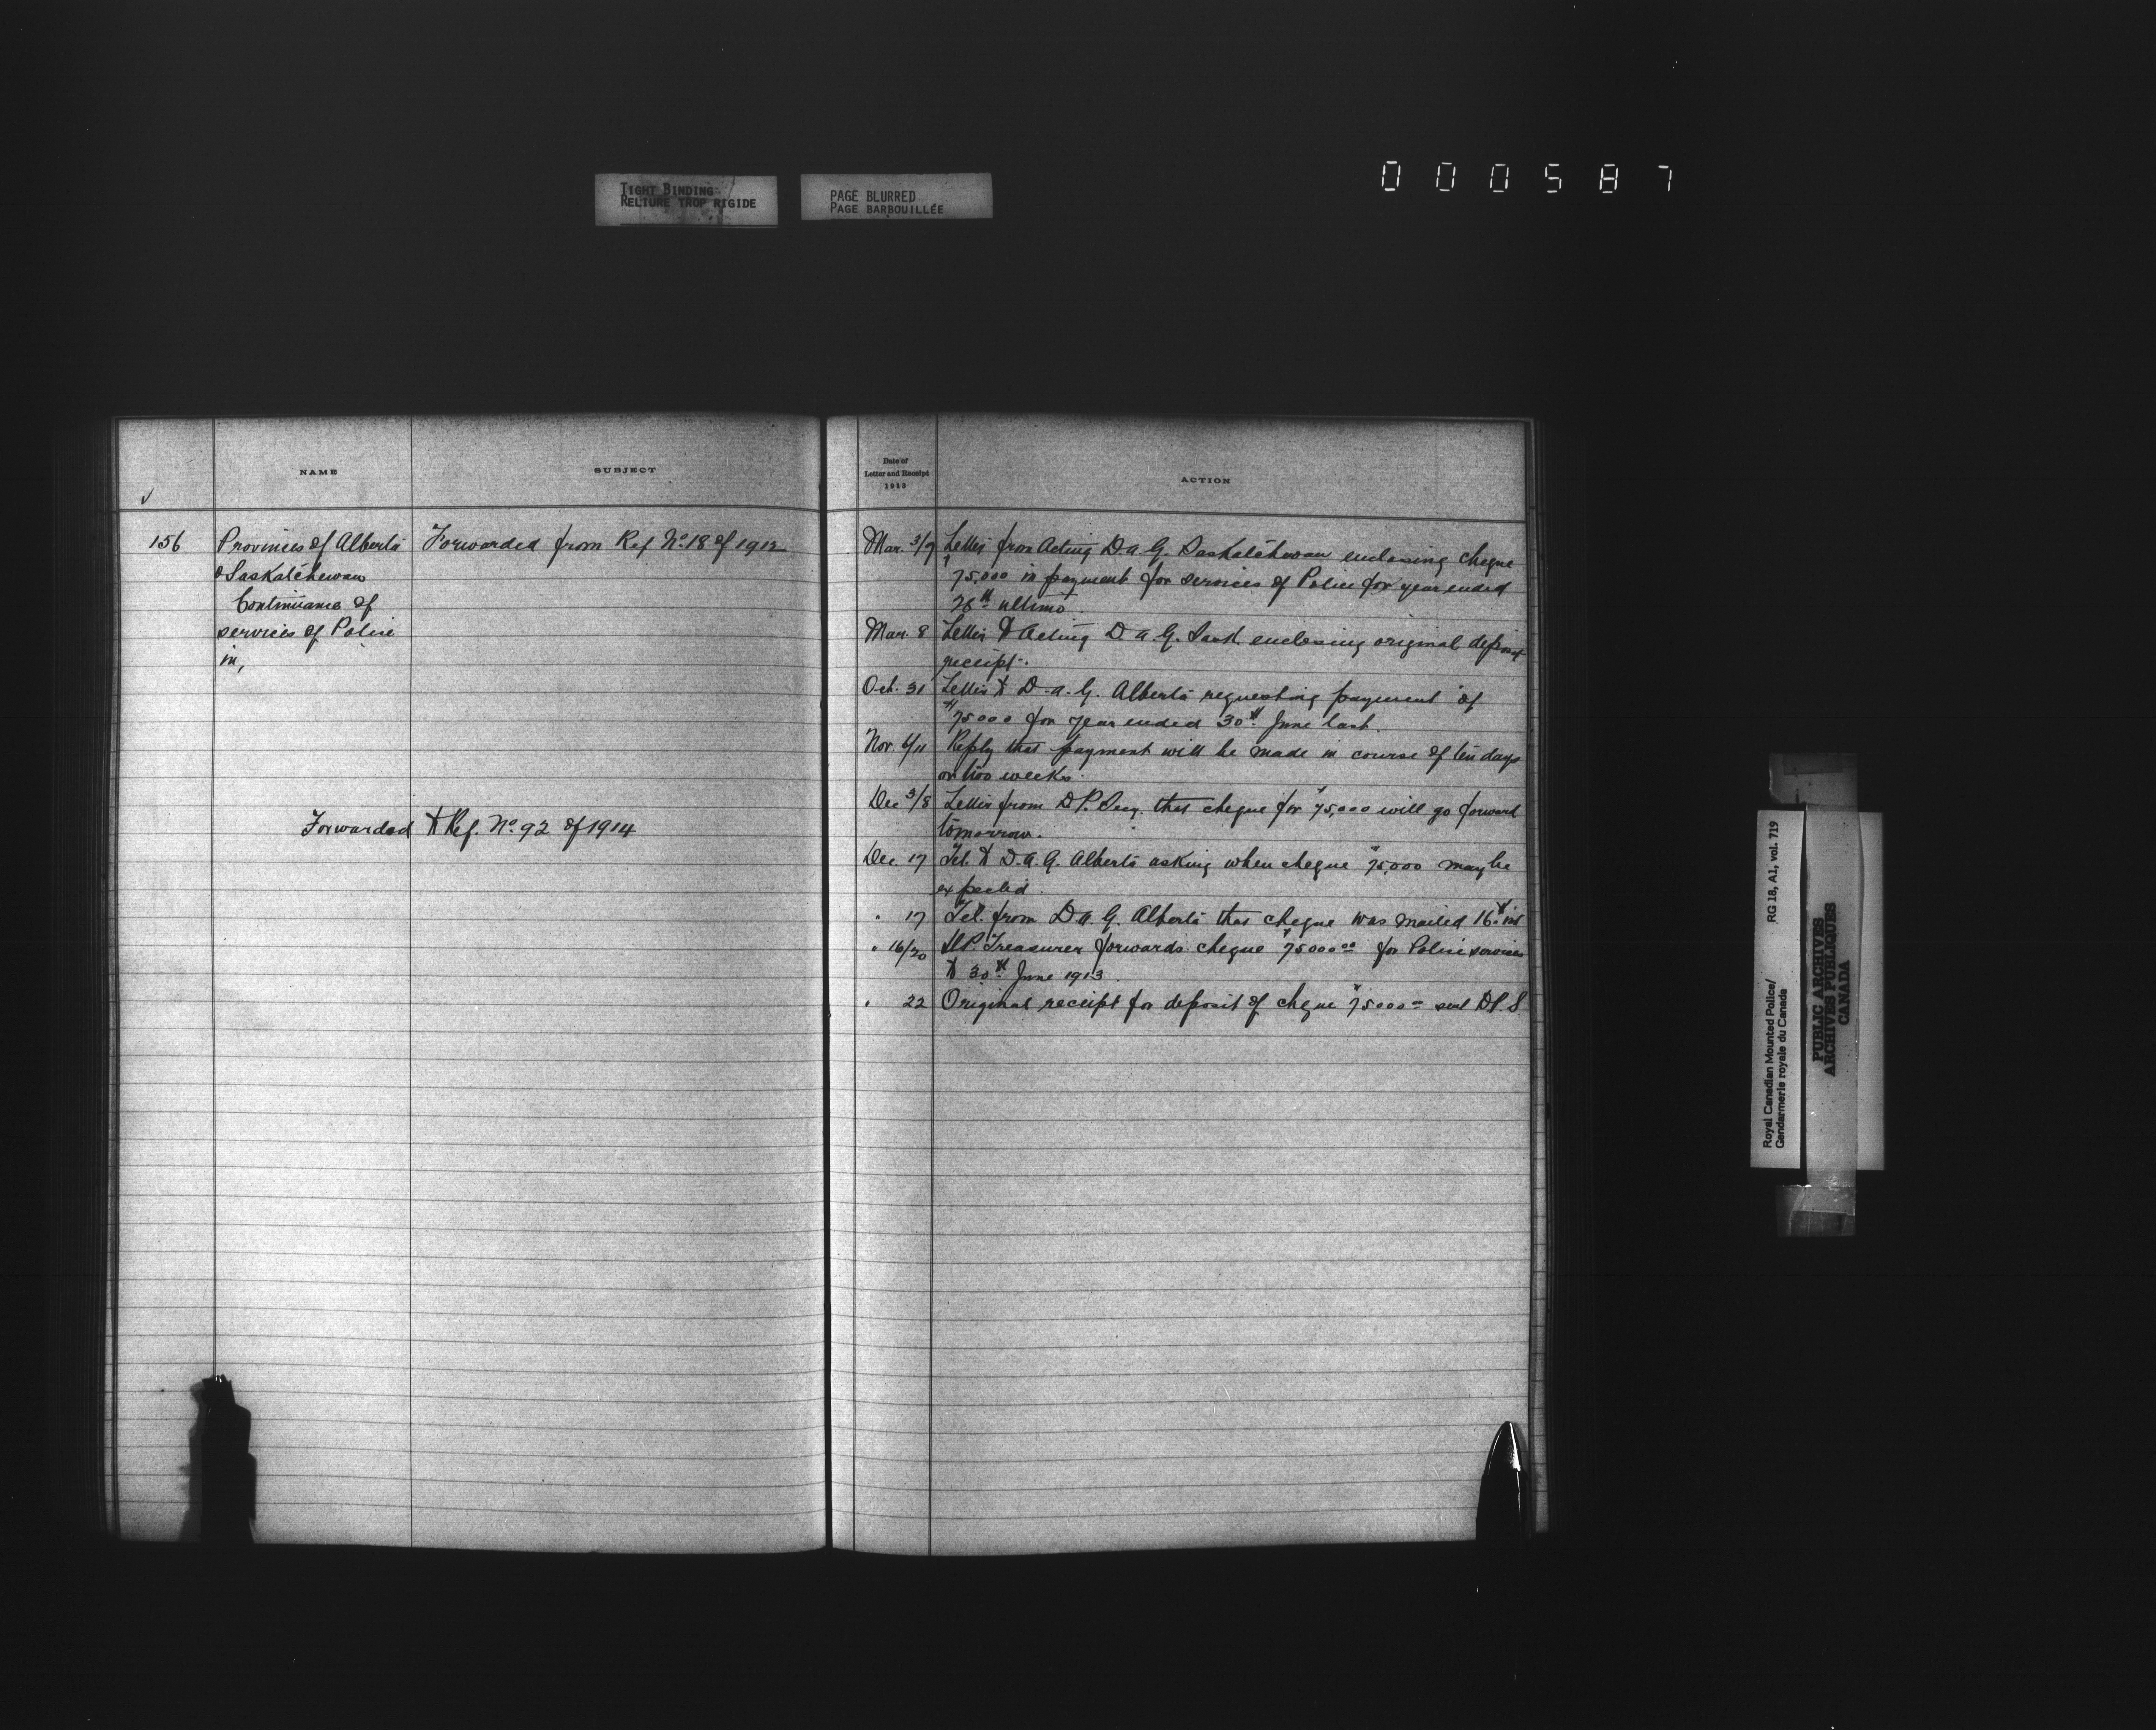 TIGHT BINDING
RELIURE TROP RIGIDE
PAGE BLURRED
PAGE BARBOUILLÉE
000587
NAME
SUBJECT
156
Provinces of Alberta
& Saskatchewan
Continuance of
services of Police
in,
Forwarded from Ref No. 18 of 1912
Forwarded to Ref. No. 92 of 1914
Date of
Letter and Receipt
1913
ACTION
Mar. 3/7 Letter from Acting D.A.G. Saskatchewan enclosing cheque
$75,000 in payment for services of Police for year ended
28th ultimo.
Mar. 8 Letter to Acting D.A.G. Sask enclosing original deposit
receipt.
Oct. 31 Letter to D.A.G. Alberta requesting payment of
$75000 for year ended 30th June last.
Nov. 6/11 Reply that payment will be made in course of ten days
or two weeks.
Dec 3/8 Letter from D.P. Secy. that cheque for $75,000 will go forward
tomorrow.
Dec. 17 Tel. to D.A.G. Alberta asking when cheque $75,000 may be
expected.
" 17 Tel. from D.A.G. Alberta that cheque was mailed 16th inst
" 16/20 D.P. Treasurer forwards cheque $75000.00 for Police services
to 30th June 1913
" 22 Original receipt for deposit of cheque $75000= sent D.P.S
Royal Canadian Mounted Police/
Gendarmerie royale du Canada
RG 18, A1, vol. 719
PUBLIC ARCHIVES
ARCHIVES PUBLIQUES
CANADA